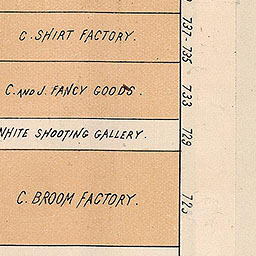 C. SHIRT FACTORY.
737-735
C. AND J. FANCY GOODS.
733
WHITE SHOOTING GALLERY.
729
C. BROOM FACTORY.
725